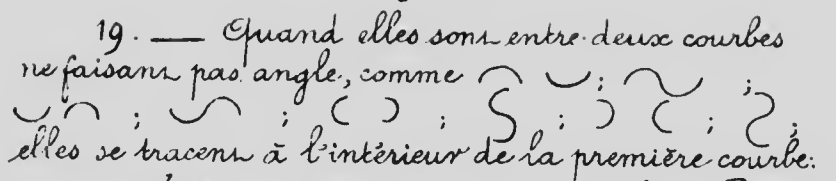 19. — Quand elles sont entre deux courbes
ne faisant pas angle, comme ⌒ ⌣ ; ;
; ; ; ; ; ;
elles se tracent à l'intérieur de la première courbe: